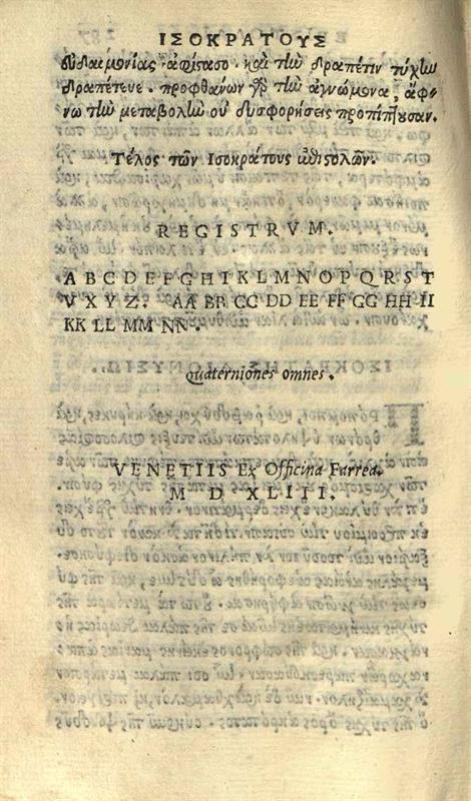 ΙΣΟΚΡΑΤΟΥΣ
εὐδαιμονίας ἀφίστασο. καὶ τὴν δραπέτιν τύχην
δραπέτευε. προφθάνων γὰρ τὴν ἀγνώμονα, ἄφ-
νω τὴν μεταβολὴν οὐ δυσφορήσεις προπίπτουσαν.
Τέλος τῶν Ισοκράτους ἐπιστολῶν.
REGISTRVM.
A B C D E F G H I K L M N O P Q R S T
V X Y Z. AA BB CC DD EE FF GG HH II
KK LL MM NN.
Quaterniones omnes.
VENETIIS Ex Officina Farrea.
M D XLIII.